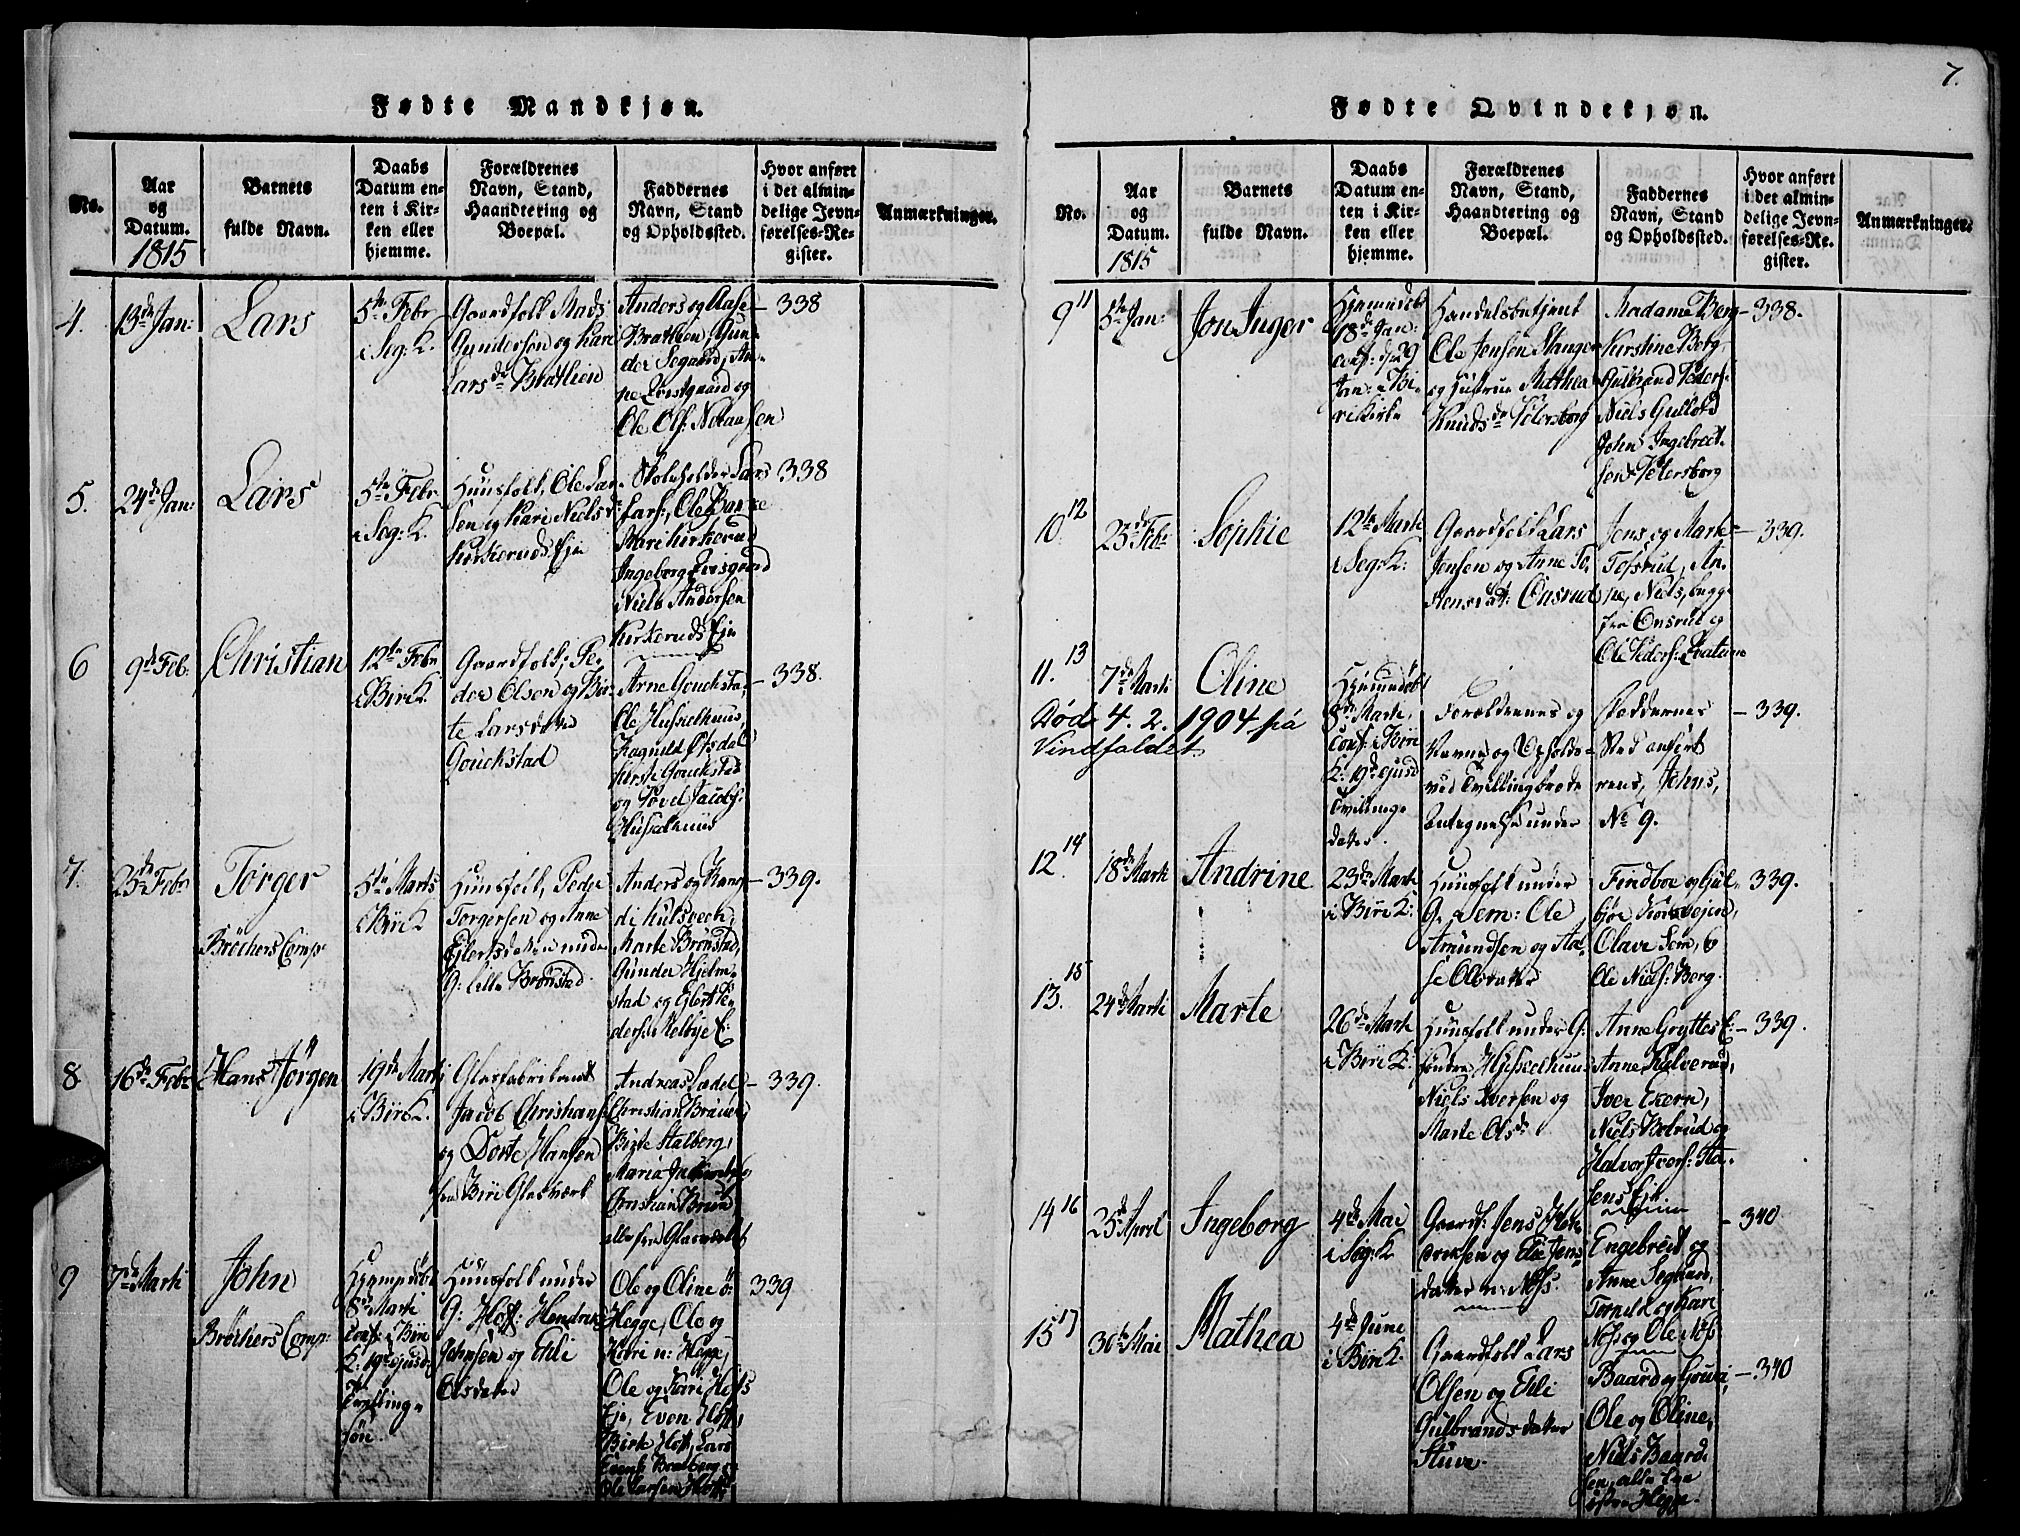 Fødte Mandkjøn.
No.
Aar
og
Datum.
1815
Barnets
fulde Navn.
Daabs
Datum en-
ten i Kir-
ken eller
hjemme.
Forældrenes
Navn, Stand,
Haandtering og
Boepæl.
Faddernes
Navn, Stand
og Opholdssted.
Hvor anført
i det almin-
delige Jevn-
førelses-Re-
gister.
Anmærkninger.
4.
13de Jan:
Lars
5te Febr
i Seg: K.
Gaardfolk Mads
Gundersen og Kari
Larsdr Bratlien
Anders og Aase
Bratlien, Gun-
der Segaard, An-
ne Qvistgaard og
Ole Ols:
338
5.
24de Jan:
Lars
5te Febr
i Seg: K.
Huusfolk, Ole Lar-
sen og Kari Nielsd
Kirkeruds Eje
Skoleholder Lars
Lars:, Ole
Mari Kirkerud
Ingeborg
Niels Andersen
Kirkeruds Eje
338
6
9de Feb.
Christian
12te Febr
i Biri K.
Gaardfolk, Pe-
der Olsen og Bir-
te Larsdatter
Gouckstad
Arne Gouckstad
Ole Husselhuus,
Ragnild
Kirsti Gouckstad
og Povel Jacobs:
Husselhuus
338.
7.
25de Febr
Torger
Bröchers Comp
5te Marts
i Biri K
Huusfolk, Peder
Torgersen og Anne
Eilertsdatter under
G: Lille Brønstad
Anders og Rang-
di
Marte Brønstad,
Gunder Hjelm-
stad og Eilert Pe-
ders: Kelbye E:
339.
8
16de Febr
Hans Jörgen
19de Marti
i Biri K.
Glasfabrikant
Jacob Christians:
og Dorte Hansen
fra Biri Glasværk
Andreas
Christian Bruun,
Birte Stalberg,
Maria
Christian Bruun
alle fra Glasværket
339.
9
7de Marti
John
Bröchers Comp:
Hjemdöbt
8de Marti
conf: i Biri
K: 19de ejusd
Tvilling-
sön.
Huusfolk under
G: Hoff: Hendrik
Johnsen og Eli
Olsdatter
Ole og Oline ö:
Hegge, Ole og
Kari n: Hegge,
Ole og Kari Hofs
Eje, Even Hoff,
Birte Hoff, Lars
Ole Larsen Hoff
339
7.
Fødte Qvindekjøn.
No.
Aar
og
Datum.
1815
Barnets
fulde Navn.
Daabs
Datum en-
ten i Kir-
ken eller
hjemme.
Forældrenes
Navn, Stand,
Haandtering og
Boepæl.
Faddernes
Navn, Stand
og Opholdssted.
Hvor anført
i det almin-
delige Jevn-
førelses-Re-
gister.
Anmærkninger.
9 11
5te Jan:
Jon Inger
Hjemmedöbt
18de Jan:
conf: d 29
Jan: i Bi-
ri Kirke
Handelsbetjent
Ole Jensen Stanger
og Hustrue Mathea
Knudsdr Petersborg
Madame Berg
Kirstine Berg,
Gulbrand Peders:
Niels Gullord
John Ingebret-
sen Petersborg
338.
10. 12
23de Febr
Sophie
12te Marti
i Seg: K:
Gaardfolk Lars
Jensen og Anne To-
stensdat: Onsrud
Jens og Marte
Tofsrud, An-
ne, Niels, begge
fra Onsrud og
Ole Peders:
339.
11. 13
7de Marti
Oline
Död 4. 2. 1904 på
Vindfaldet
Hjemmedöbt
8de Marti,
conf: i Biri
K: 19de ejusd
Tvillinge
datter.
Forældrenes og
Navne og Opholds-
ved Tvillingbroderens
Antegnelse under
Faddernes
Sted anført
rens, Johns,
No 9.
339.
12 14
18de Marti
Andrine
23de Marti
i Biri K:
Huusfolk under
G. Sem: Ole
Amundsen og Aa-
se Olsdatter
Findboe og Gul-
björ
Olave Sem, &
Ole Niels: Berg.
339.
13. 15
24de Marti
Marte
26de Marti
i Biri K.
Huusfolk under G:
söndre Husselhuus
Niels Iversen og
Marte Olsdr
Anne Gryttes E:
Anne Kalverud,
Iver Exern,
Niels Bolrud og
Halvor Ivers: Sta-
sens Eje
339.
14 16
25de April
Ingeborg
4de Mai
i Seg: K
Gaardf: Jens Hen-
driksen og Eli Jens
datter n: Næss.
Engebret og
Anne Segaard,
Torneld og Kari
Næss og Ole Næss
340
15 17
30te Mai
Mathea
4de June
i Biri K.
Gaardfolk Lars
Olsen og Eli
Gulbrandsdatter
Stuve.
Baard og Gouri,
Ole og Oline,
Niels Baard-
sen, alle fra
östre Hegge.
340